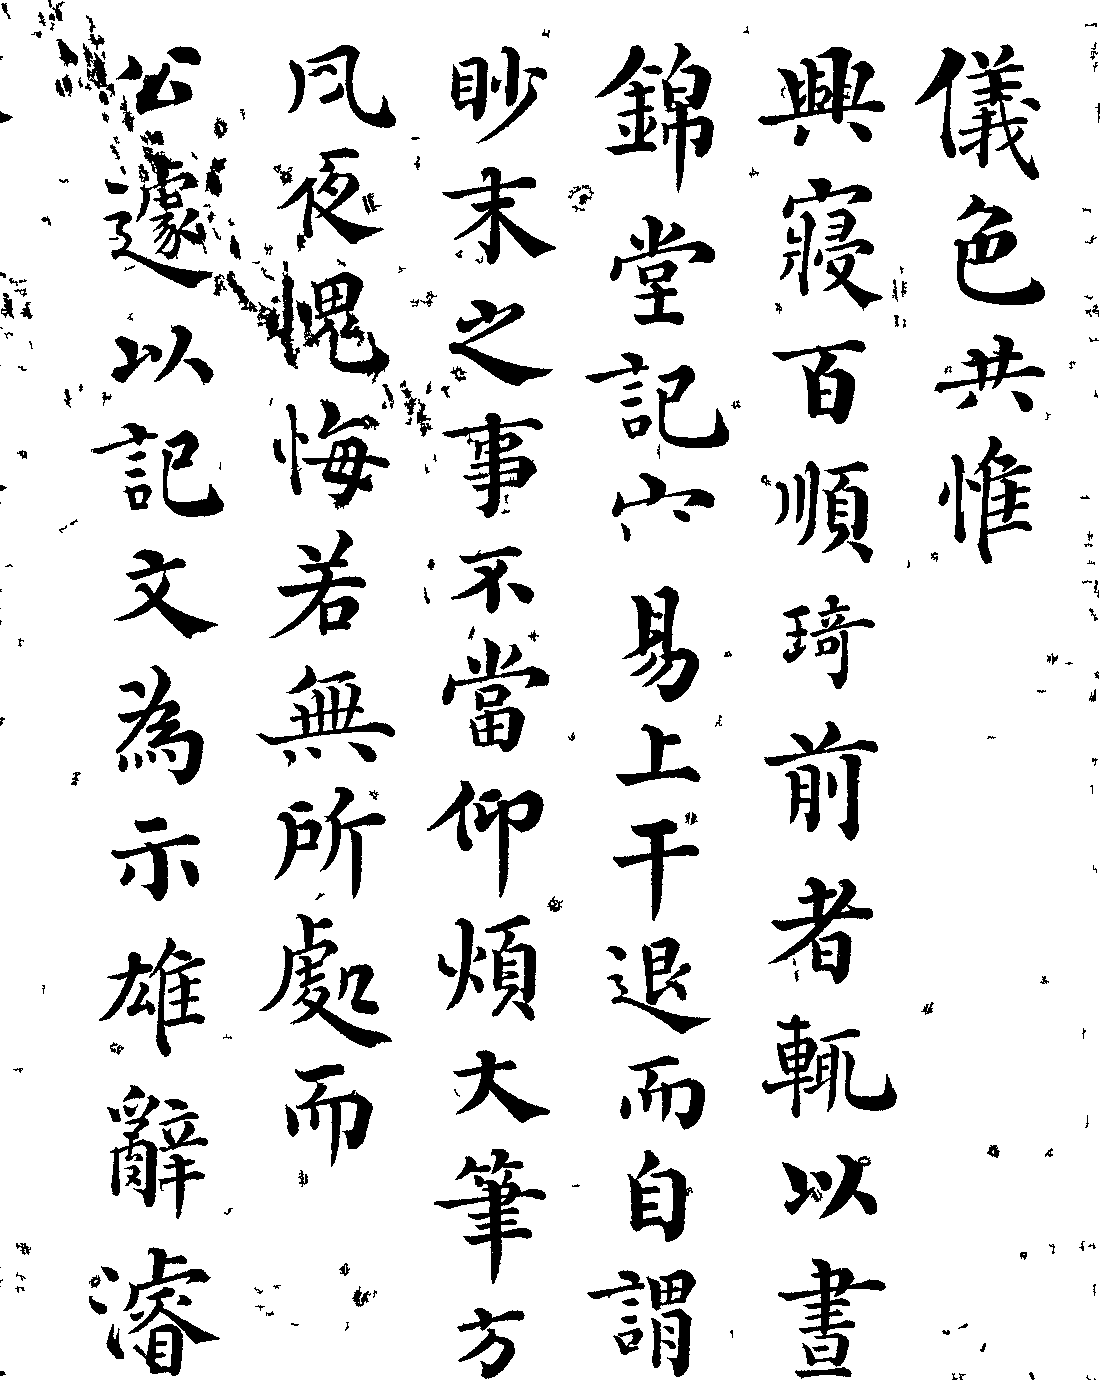 儀色共惟
興寢百順琦前者輒以晝
錦堂記容易上干退而自謂
眇末之事不當仰煩大筆方
夙夜愧悔若無所處而
公遽以記文為示雄辭濬